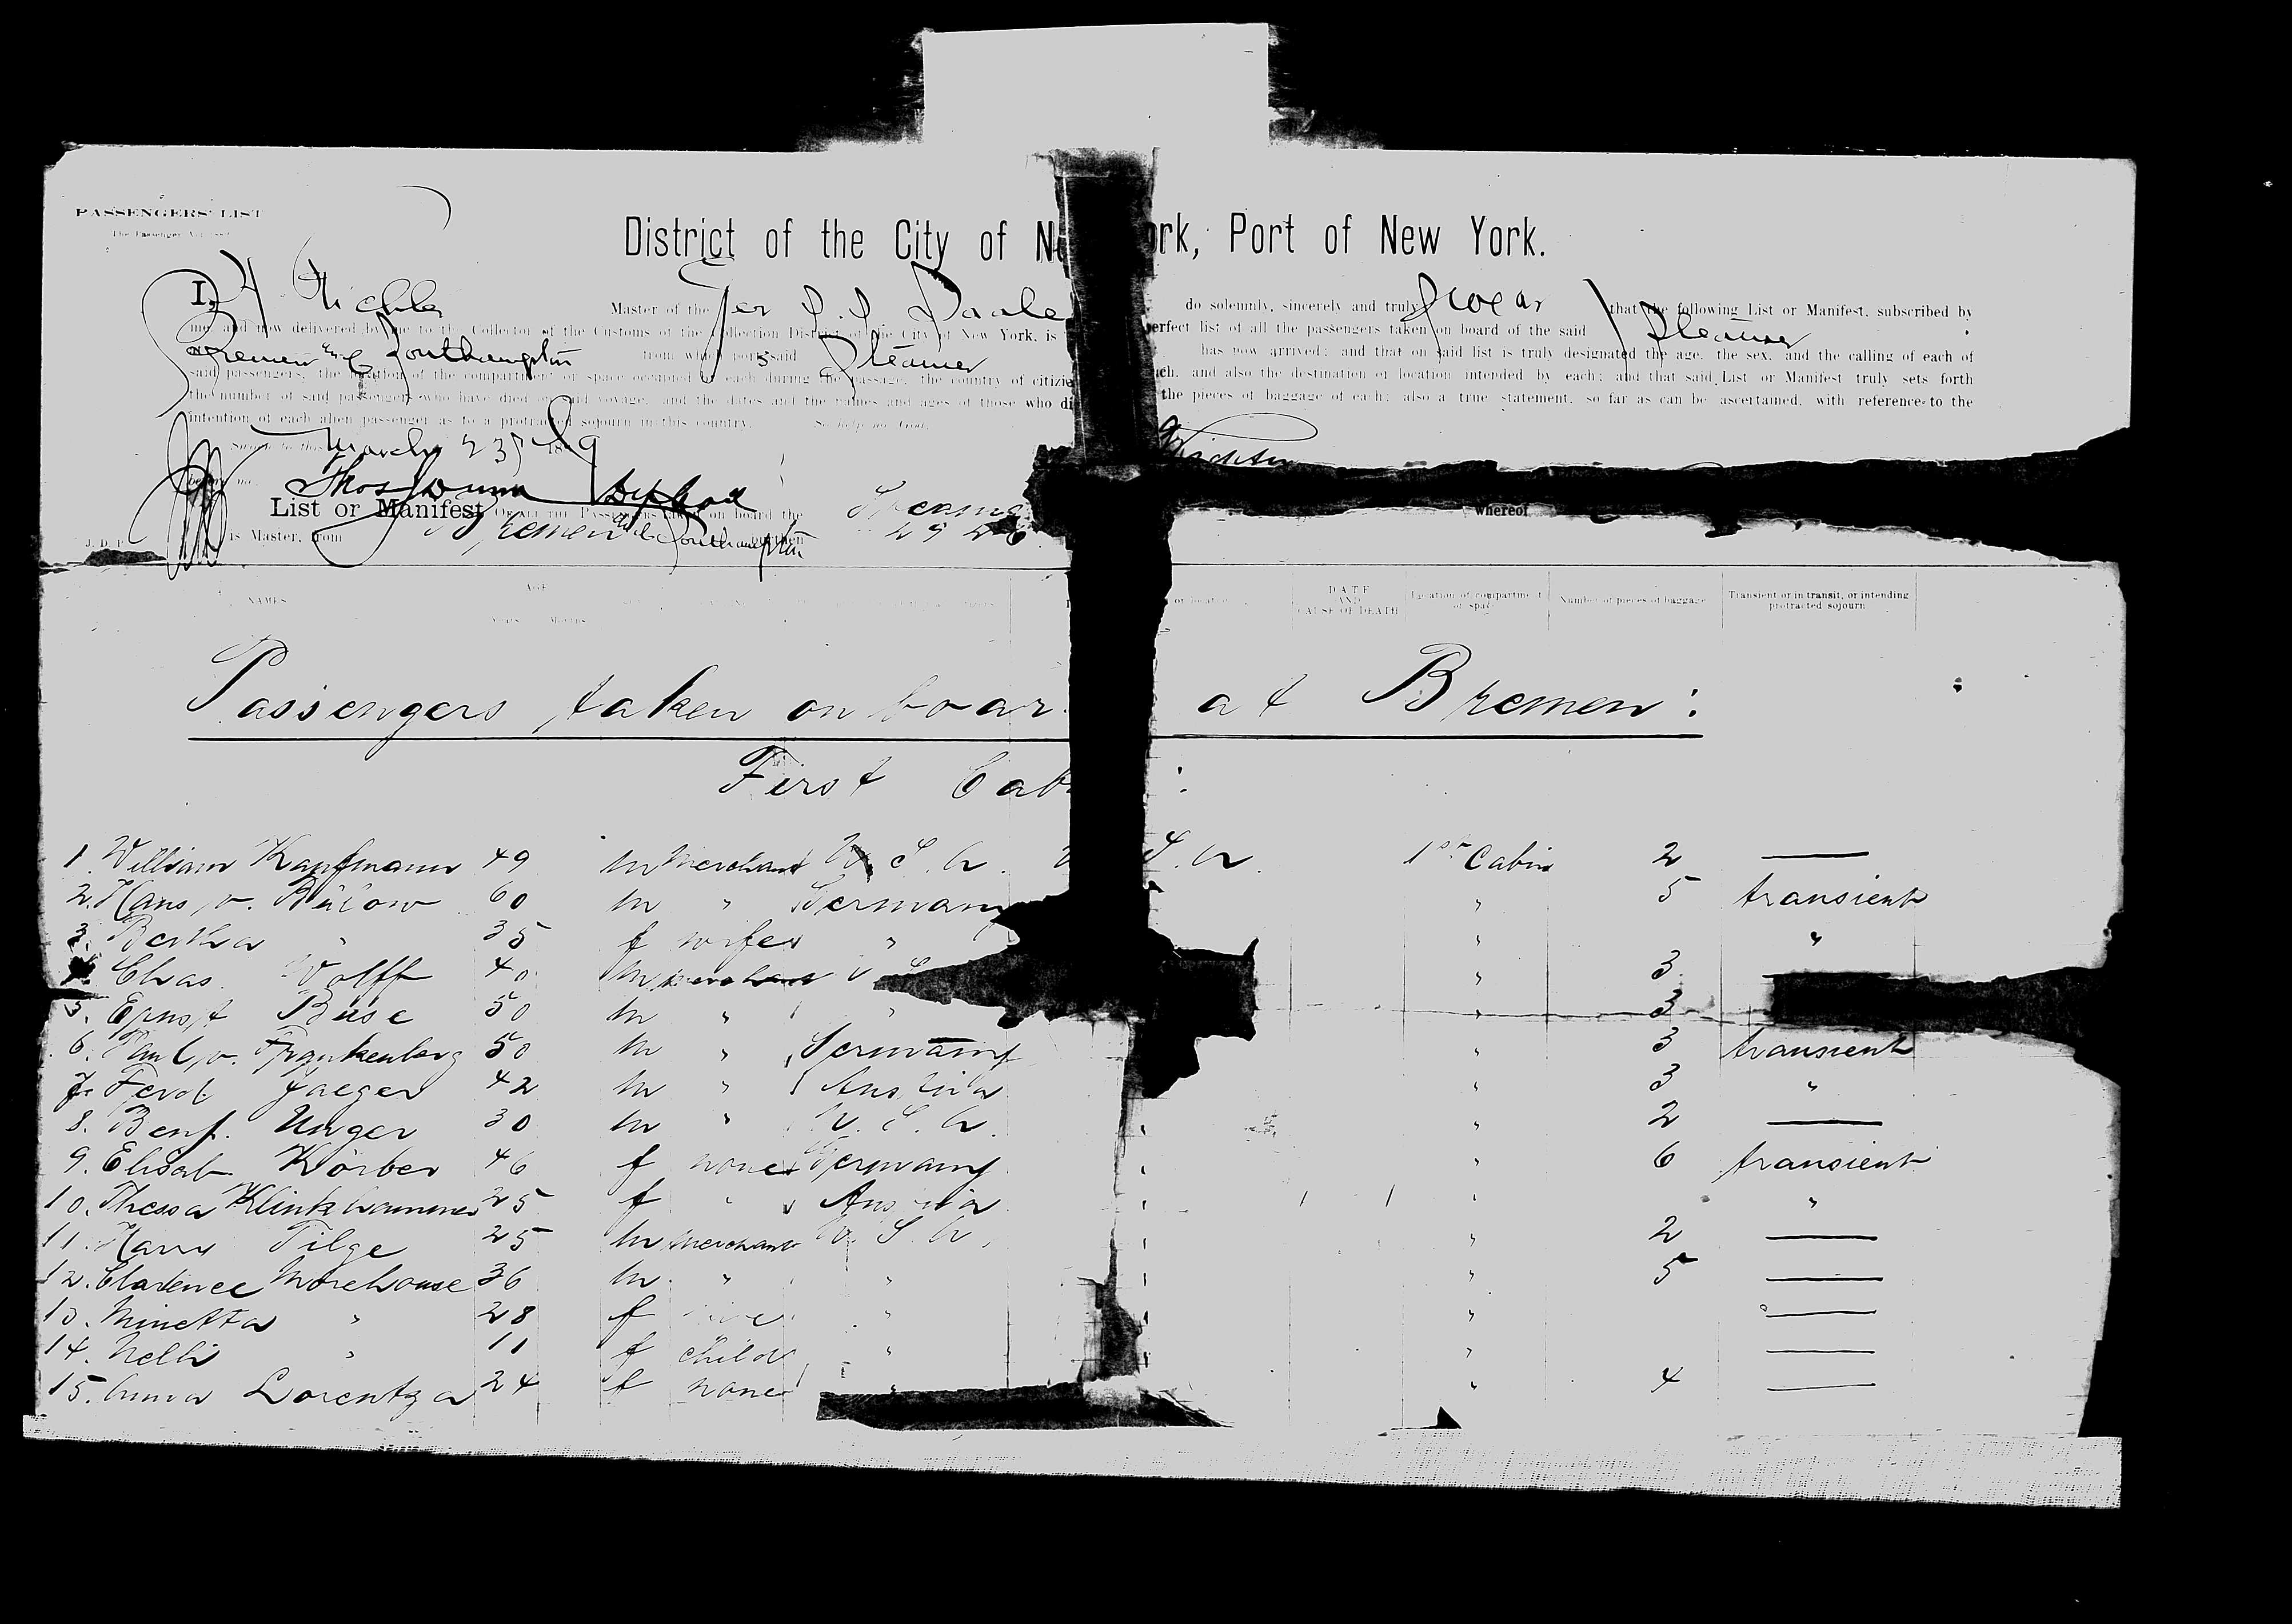 PASSENGERS' LIST
District of the City of Ne ork, Port of New York.
I, Master of the Ger S.S. Saale do solemnly, sincerely and truly swear that the following List or Manifest, subscribed by
me, and now delivered by me to the Collector of the Customs of the Collection District of the City of New York, is perfect list of all the passengers taken on board of the said Steamer
Bremen and Southampton from which port said Steamer has now arrived; and that on said list is truly designated the age, the sex, and the calling of each of
said passengers, the location of the compartment or space occupied by each during the passage, the country of citize ch, and also the destination or location intended by each; and that said List or Manifest truly sets forth
the number of said passengers who have died on said voyage, and the dates and the names and ages of those who di the pieces of baggage of each; also a true statement, so far as can be ascertained, with reference to the
intention of each alien passenger as to a protracted sojourn in this country. So help me God.
Sworn to this March 23 1889
Thos Dunn
List or Manifest OF ALL THE PASSENGERS taken on board the Steam whereof
is Master, from Bremen and Southampton burthen
NAMES AGE Years Months or locati DATE AND CAUSE OF DEATH Location of compartment or space Number of pieces of baggage Transient or in transit, or intending protracted sojourn
Passengers taken on boar at Bremen:
First Cab :
1. William Kaufmann 49 m Merchant U. S. A. U. S. A. 1st Cabin 2 —
2. Hans v. Bülow 60 m " Germany " 5 transient
3. Bertha " 35 f wife " " "
4. Chas. Wolff 40 m merchant U. S " 3
5. Ernst Buse 50 m " " " 3
6. Paul v. Frankenberg 50 m " Germany " 3 transient
7. Ferd. Jaeger 42 m " Austria " 3 "
8. Benj. Unger 30 m " U. S. A. " 2 —
9. Elisab. Körber 46 f none Germany " 6 transient
10. Theresa Klinkhammer 25 f " Austria " "
11. Harry Tilge 25 m merchant U. S. A. " 2 —
12. Clarence Morehouse 36 m " " " 5 —
13. Minetta " 28 f " " —
14. Nelli " 11 f child " " —
15. Anna Lorentza 24 f none " " 4 —